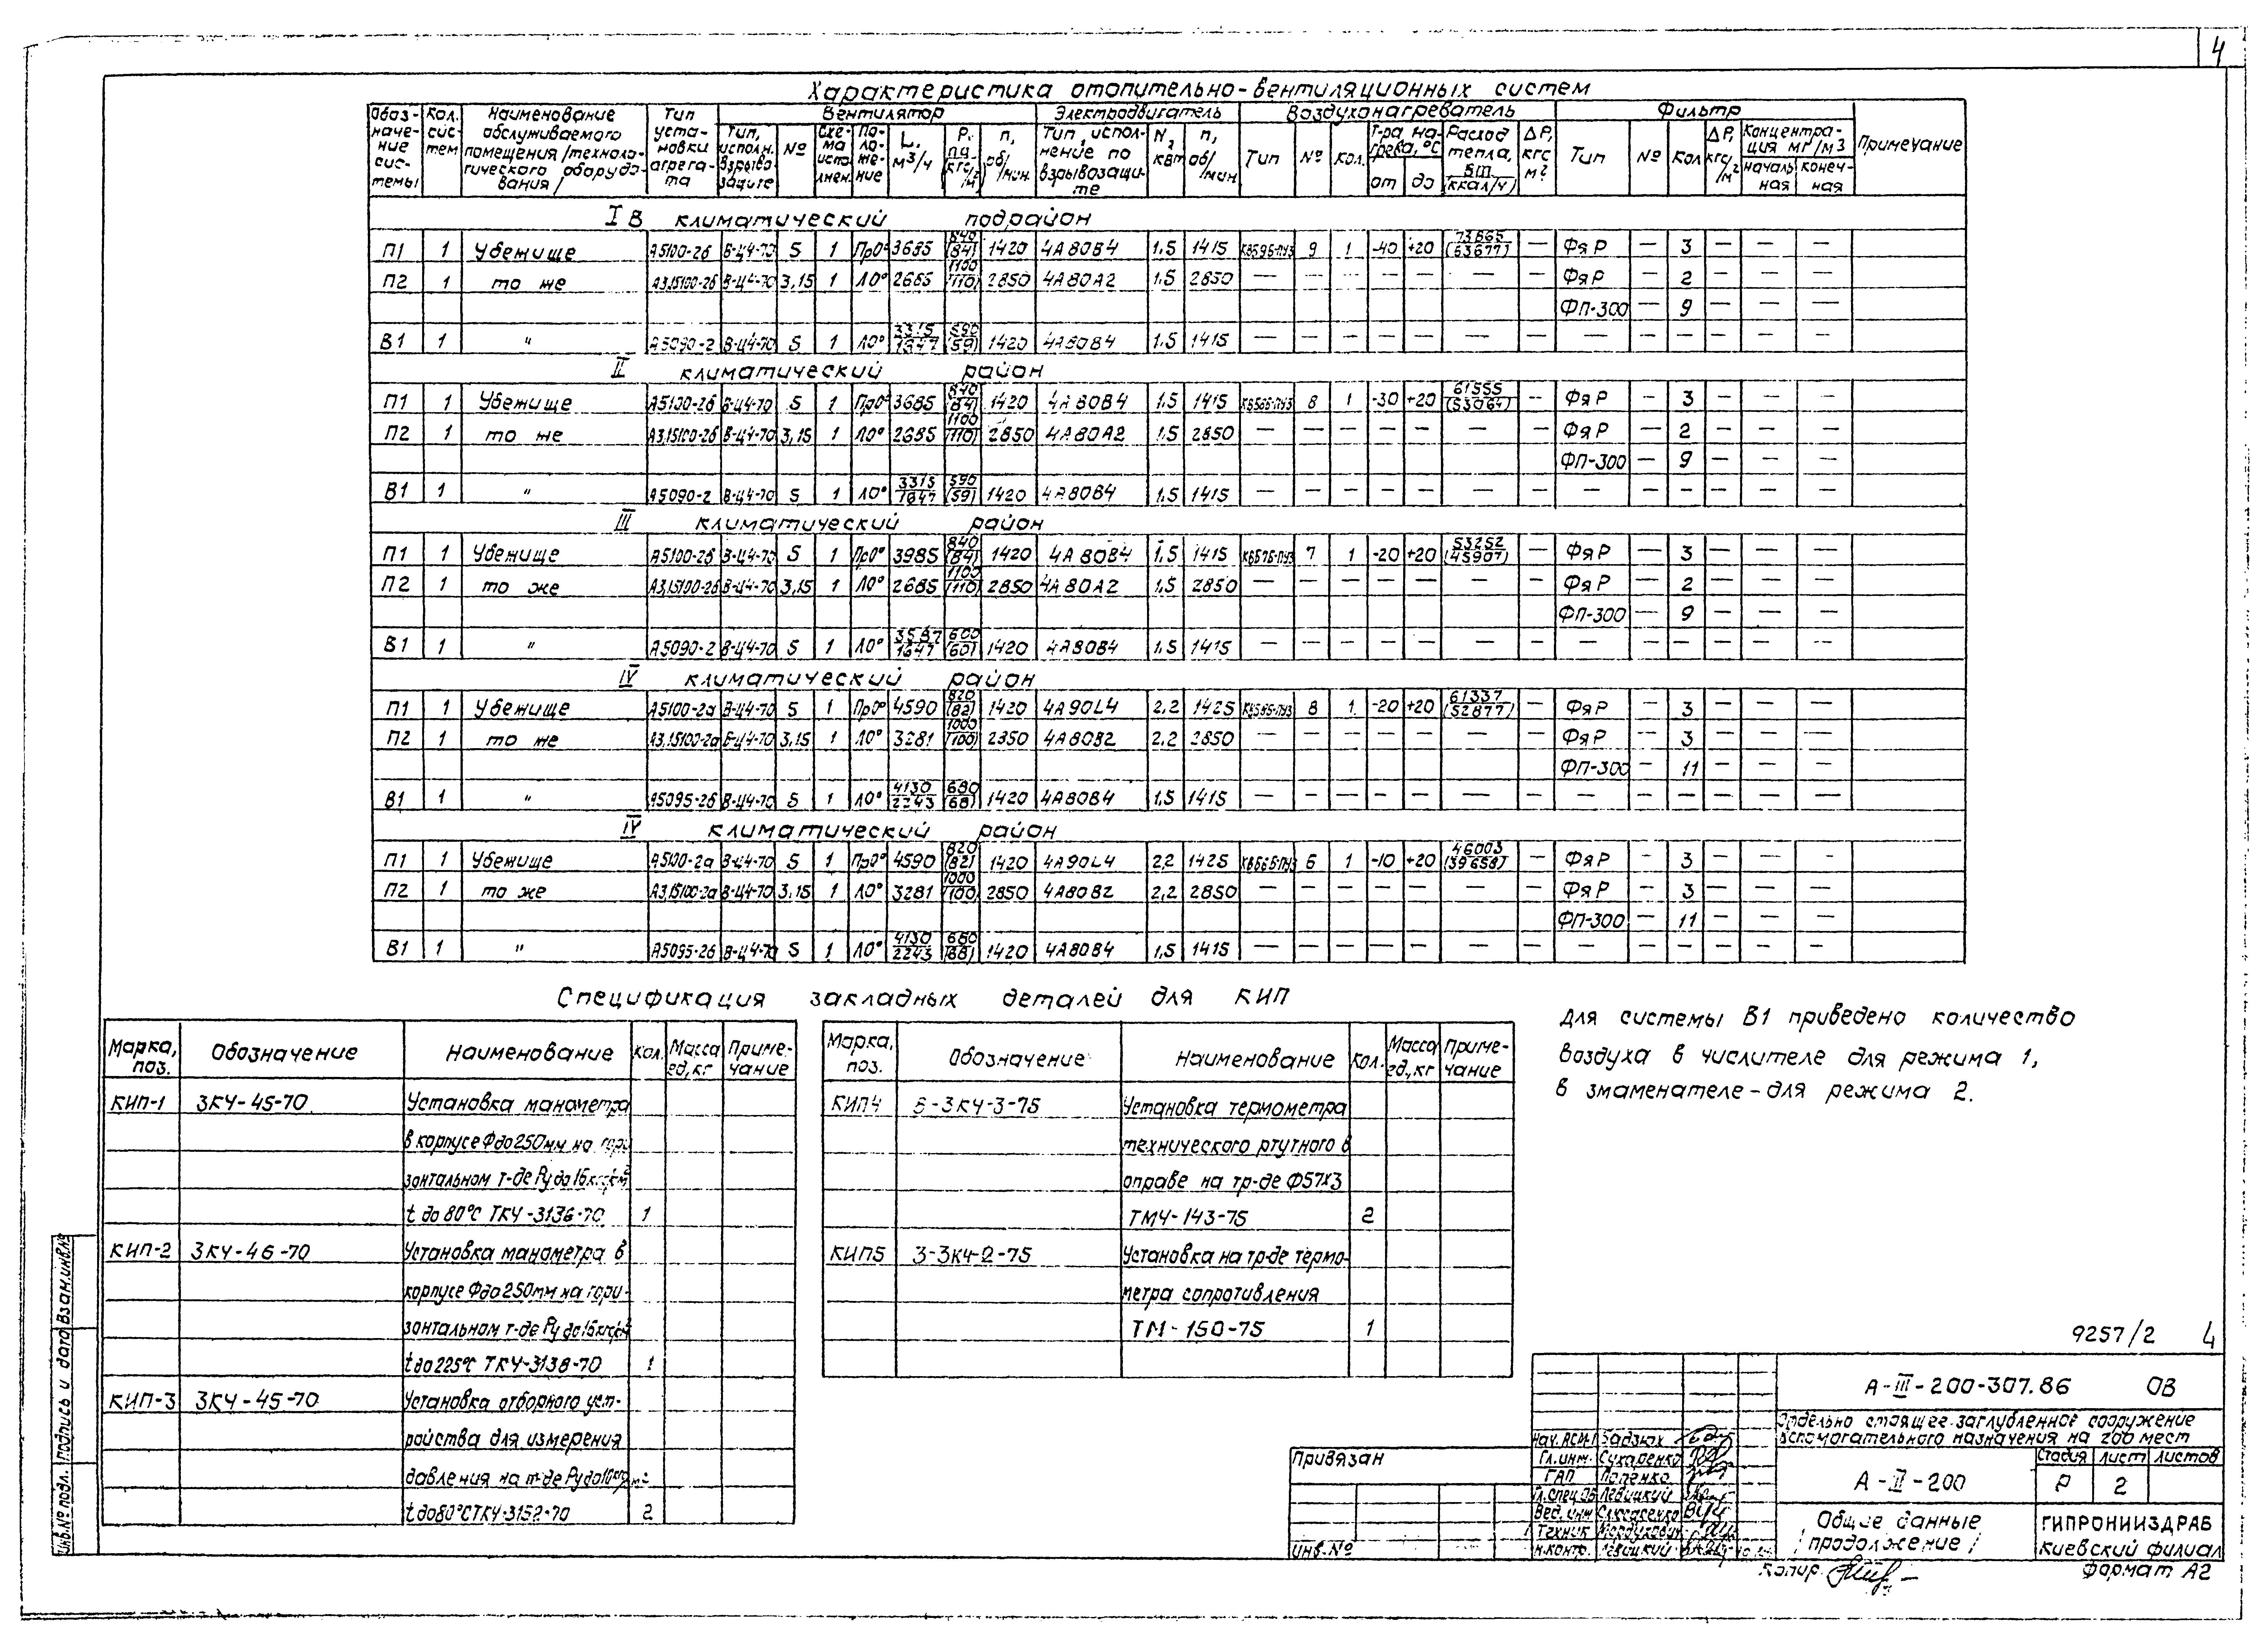 4
Характеристика отопительно-вентиляционных систем
Обоз-наче-ние сис-темы | Кол. сис-тем | Наименование обслуживаемого помещения /техноло-гического оборудо-вания/ | Тип уста-новки агрега-та | Вентилятор | Электродвигатель | Воздухонагреватель | Фильтр | Примечание
Тип, исполн. взрыво защите | № | Схе-ма испо лнен. | По-ло-же-ние | L, м3/ч | Р, па (кгс/м2) | n, об/мин. | Тип, испол-нение по взрывозащи-те | N, квт | n, об/мин | Тип | № | кол. | Т-ра на-грева, °С от до | Расход тепла, Вт (ккал/ч) | ΔР, кгс м2 | Тип | № | Кол | ΔР, кгс/м2 | Концентра-ция мг/м3 началь ная конеч-ная
I В климатический подрайон
П1 1 Убежище А5100-2б В-Ц4-70 5 1 Пр0° 3685 840 (84) 1420 4А80В4 1,5 1415 9 1 -40 +20 73865 (63677) — ФяР — 3 — — —
П2 1 то же А3,15100-2б В-Ц4-70 3,15 1 Л0° 2685 1100 (110) 2850 4А80А2 1,5 2850 — — — — — — — ФяР — 2 — — —
ФП-300 — 9 — — —
В1 1 " А5090-2 В-Ц4-70 5 1 Л0° 3315 1647 590 (59) 1420 4А80В4 1,5 1415 — — — — — — — — — — — — —
II климатический район
П1 1 Убежище А5100-2б В-Ц4-70 5 1 Пр0° 3685 840 (84) 1420 4А80В4 1,5 1415 8 1 -30 +20 61555 (53064) — ФяР — 3 — — —
П2 1 то же А3,15100-2б В-Ц4-70 3,15 1 Л0° 2685 1100 (110) 2850 4А80А2 1,5 2850 — — — — — — — ФяР — 2 — — —
ФП-300 — 9 — — —
В1 1 " А5090-2 В-Ц4-70 5 1 Л0° 3315 1647 590 (59) 1420 4А80В4 1,5 1415 — — — — — — — — — — — — —
III климатический район
П1 1 Убежище А5100-2б В-Ц4-70 5 1 Пр0° 3985 840 (84) 1420 4А80В4 1,5 1415 7 1 -20 +20 53252 (45907) — ФяР — 3 — — —
П2 1 то же А3,15100-2б В-Ц4-70 3,15 1 Л0° 2685 1100 (110) 2850 4А80А2 1,5 2850 — — — — — — — ФяР — 2 — — —
ФП-300 — 9 — — —
В1 1 " А5090-2 В-Ц4-70 5 1 Л0° 3587 1647 600 (60) 1420 4А80В4 1,5 1415 — — — — — — — — — — — — —
IV климатический район
П1 1 Убежище А5100-2а В-Ц4-70 5 1 Пр0° 4590 820 (82) 1420 4А90L4 2,2 1425 8 1 -20 +20 61337 (52877) — ФяР — 3 — — —
П2 1 то же А3,15100-2а В-Ц4-70 3,15 1 Л0° 3281 1000 (100) 2850 4А80В2 2,2 2850 — — — — — — — ФяР — 3 — — —
ФП-300 — 11 — — —
В1 1 " А5095-2б В-Ц4-70 5 1 Л0° 4130 2243 680 (68) 1420 4А80В4 1,5 1415 — — — — — — — — — — — — —
IV климатический район
П1 1 Убежище А5100-2а В-Ц4-70 5 1 Пр0° 4590 820 (82) 1420 4А90L4 2,2 1425 6 1 -10 +20 46003 (39658) — ФяР - 3 — — -
П2 1 то же А3,15100-2а В-Ц4-70 3,15 1 Л0° 3281 1000 (100) 2850 4А80В2 2,2 2850 — — — — — — — ФяР — 3 — — —
ФП-300 — 11 — — —
В1 1 " А5095-2б В-Ц4-70 5 1 Л0° 4130 2243 680 (68) 1420 4А80В4 1,5 1415 — — — — — — — — — — — — —
Спецификация закладных деталей для КИП
Марка, поз. | Обозначение | Наименование | Кол. | Масса ед,кг | Приме-чание
КИП-1 ЗКЧ-45-70 Установка манометра
в корпусе Ф до 250мм на гори
зонтальном т-де Ру до 16 кгс/см2
t до 80°С ТКЧ-3136-70 1
КИП-2 ЗКЧ-46-70 Установка манометра в
корпусе Ф до 250мм на гори-
зонтальном т-де Ру до 16кгс/см2
t до 225°С ТКЧ-3138-70 1
КИП-3 ЗКЧ-45-70 Установка отборного уст-
ройства для измерения
давления на т-де Ру до 10 кгс/см2
t до 80°С ТКЧ-3152-70 2
Марка, поз. | Обозначение | Наименование | Кол. | Масса ед,кг | Приме-чание
КИП4 6-ЗКЧ-3-75 Установка термометра
технического ртутного в
оправе на тр-де Ф57х3
ТМЧ-143-75 2
КИП5 3-ЗКЧ-2-75 Установка на тр-де термо-
метра сопротивления
ТМ-150-75 1
Для системы В1 приведено количество
воздуха в числителе для режима 1,
в знаменателе-для режима 2.
9257/2 4
А-III-200-307.86 ОВ
Отдельно стоящее заглубленное сооружение
вспомогательного назначения на 200 мест
А-II-200
Стадия Лист Листов
Р 2
Общие данные
/продолжение/
ГИПРОНИИЗДРАВ
Киевский филиал
Нач. АСМ-1 Бадзюх
Гл.инж. Сухаренко
ГАП Попенко
Гл.спец.ОВ Левицкий
Вед. инж
Техник
Н.контр. Левицкий
Привязан
Инв.№
Копир.
Формат А2
Инв.№ подл. Подпись и дата Взам.инв.№